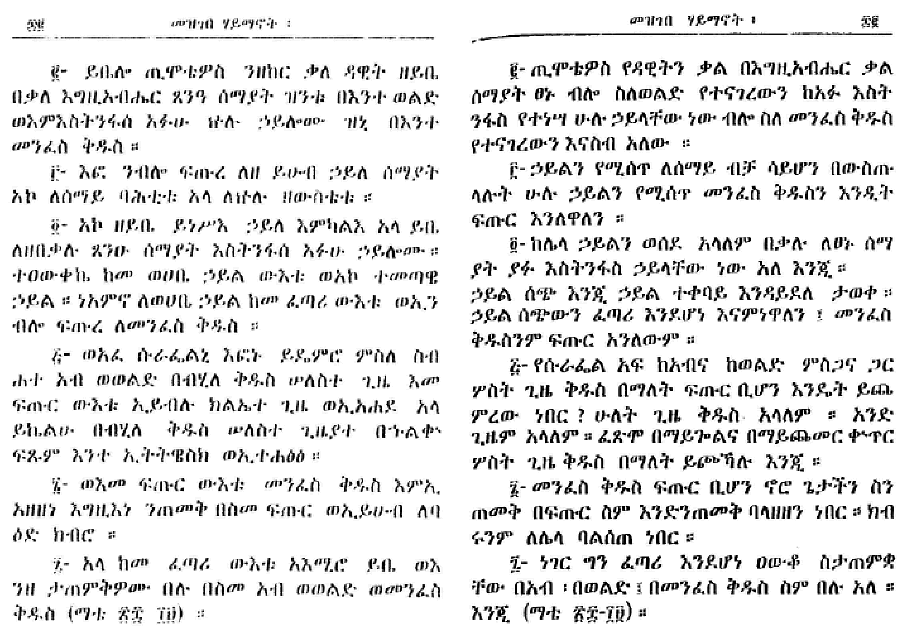 መዝገበ ሃይማኖት ፡
፪- ይቤሎ ጢሞቴዎስ ንዘከር ቃለ ዳዊት ዘይቤ
በቃለ እግዚአብሔር ጸንዓ ሰማያት ዝንቱ በእንተ ወልድ
ወእምእስትንፋሰ አፉሁ ኵሉ ኃይሎሙ ዝኒ በእንተ
መንፈስ ቅዱስ ።
፫- እፎ ንብሎ ፍጡረ ለዘ ይሁብ ኃይለ ሰማያት
አኮ ለሰማይ ባሕቲቱ አላ ለኵሉ ዘውስቴቱ ።
፬- አኮ ዘይቤ ይነሥእ ኃይለ እምካልእ አላ ይቤ
ለዘበቃሉ ጸንዑ ሰማያት እስትንፋሰ አፉሁ ኃይሎሙ ።
ተዐውቀኬ ከመ ወሀቤ ኃይል ውእቱ ወአኮ ተመጣዊ
ኃይል ። ነአምኖ ለወሀቤ ኃይል ከመ ፈጣሪ ውእቱ ወኢን
ብሎ ፍጡረ ለመንፈስ ቅዱስ ።
፭- ወአፈ ሱራፌልኒ እፎኑ ይዴምሮ ምስለ ስብ
ሐተ አብ ወወልድ በብሂለ ቅዱስ ሠለስተ ጊዜ እመ
ፍጡር ውእቱ ኢይብሉ ክልኤተ ጊዜ ወኢአሐደ አላ
ይኬልሁ በብሂለ ቅዱስ ሠለስተ ጊዜያተ በኁልቍ
ፍጹም እንተ ኢትትዌስክ ወኢተሐፅፅ ።
፮- ወእመ ፍጡር ውእቱ መንፈስ ቅዱስ እምኢ
አዘዘነ እግዚእነ ንጠመቅ በስመ ፍጡር ወኢይሁብ ለባ
ዕድ ክብሮ ።
፯- አላ ከመ ፈጣሪ ውእቱ አእሚሮ ይቤ ወእ
ንዘ ታጠምቅዎሙ በሉ በስመ አብ ወወልድ ወመንፈስ
ቅዱስ (ማቴ ፳፰ ፲፱) ።
መዝገበ ሃይማኖት ፡
፪- ጢሞቴዎስ የዳዊትን ቃል በእግዚአብሔር ቃል
ሰማያት ፀኑ ብሎ ስለወልድ የተናገረውን ከአፉ እስት
ንፋስ የተነሣ ሁሉ ኃይላቸው ነው ብሎ ስለ መንፈስ ቅዱስ
የተናገረውን እናስብ አለው ።
፫- ኃይልን የሚሰጥ ለሰማይ ብቻ ሳይሆን በውስጡ
ላሉት ሁሉ ኃይልን የሚሰጥ መንፈስ ቅዱስን እንዴት
ፍጡር እንለዋለን ።
፬- ከሌላ ኃይልን ወሰደ አላለም በቃሉ ለፀኑ ሰማ
ያት ያፉ እስትንፋስ ኃይላቸው ነው አለ እንጂ ።
ኃይል ሰጭ እንጂ ኃይል ተቀባይ እንዳይደለ ታወቀ ።
ኃይል ሰጭውን ፈጣሪ እንደሆነ እናምነዋለን ፤ መንፈስ
ቅዱስንም ፍጡር አንለውም ።
፭- የሱራፌል አፍ ከአብና ከወልድ ምስጋና ጋር
ሦስት ጊዜ ቅዱስ በማለት ፍጡር ቢሆን እንዴት ይጨ
ምረው ነበር ? ሁለት ጊዜ ቅዱስ አላለም ። አንድ
ጊዜም አላለም ። ፈጽሞ በማይጐልና በማይጨመር ቍጥር
ሦስት ጊዜ ቅዱስ በማለት ይጮኻሉ እንጂ ።
፮- መንፈስ ቅዱስ ፍጡር ቢሆን ኖሮ ጌታችን ስን
ጠመቅ በፍጡር ስም እንድንጠመቅ ባላዘዘን ነበር ። ክብ
ሩንም ለሌላ ባልሰጠ ነበር ።
፯- ነገር ግን ፈጣሪ እንደሆነ ዐውቆ ስታጠምቋ
ቸው በአብ ፡ በወልድ ፤ በመንፈስ ቅዱስ ስም በሉ አለ ።
እንጂ (ማቴ ፳፰-፲፱) ።